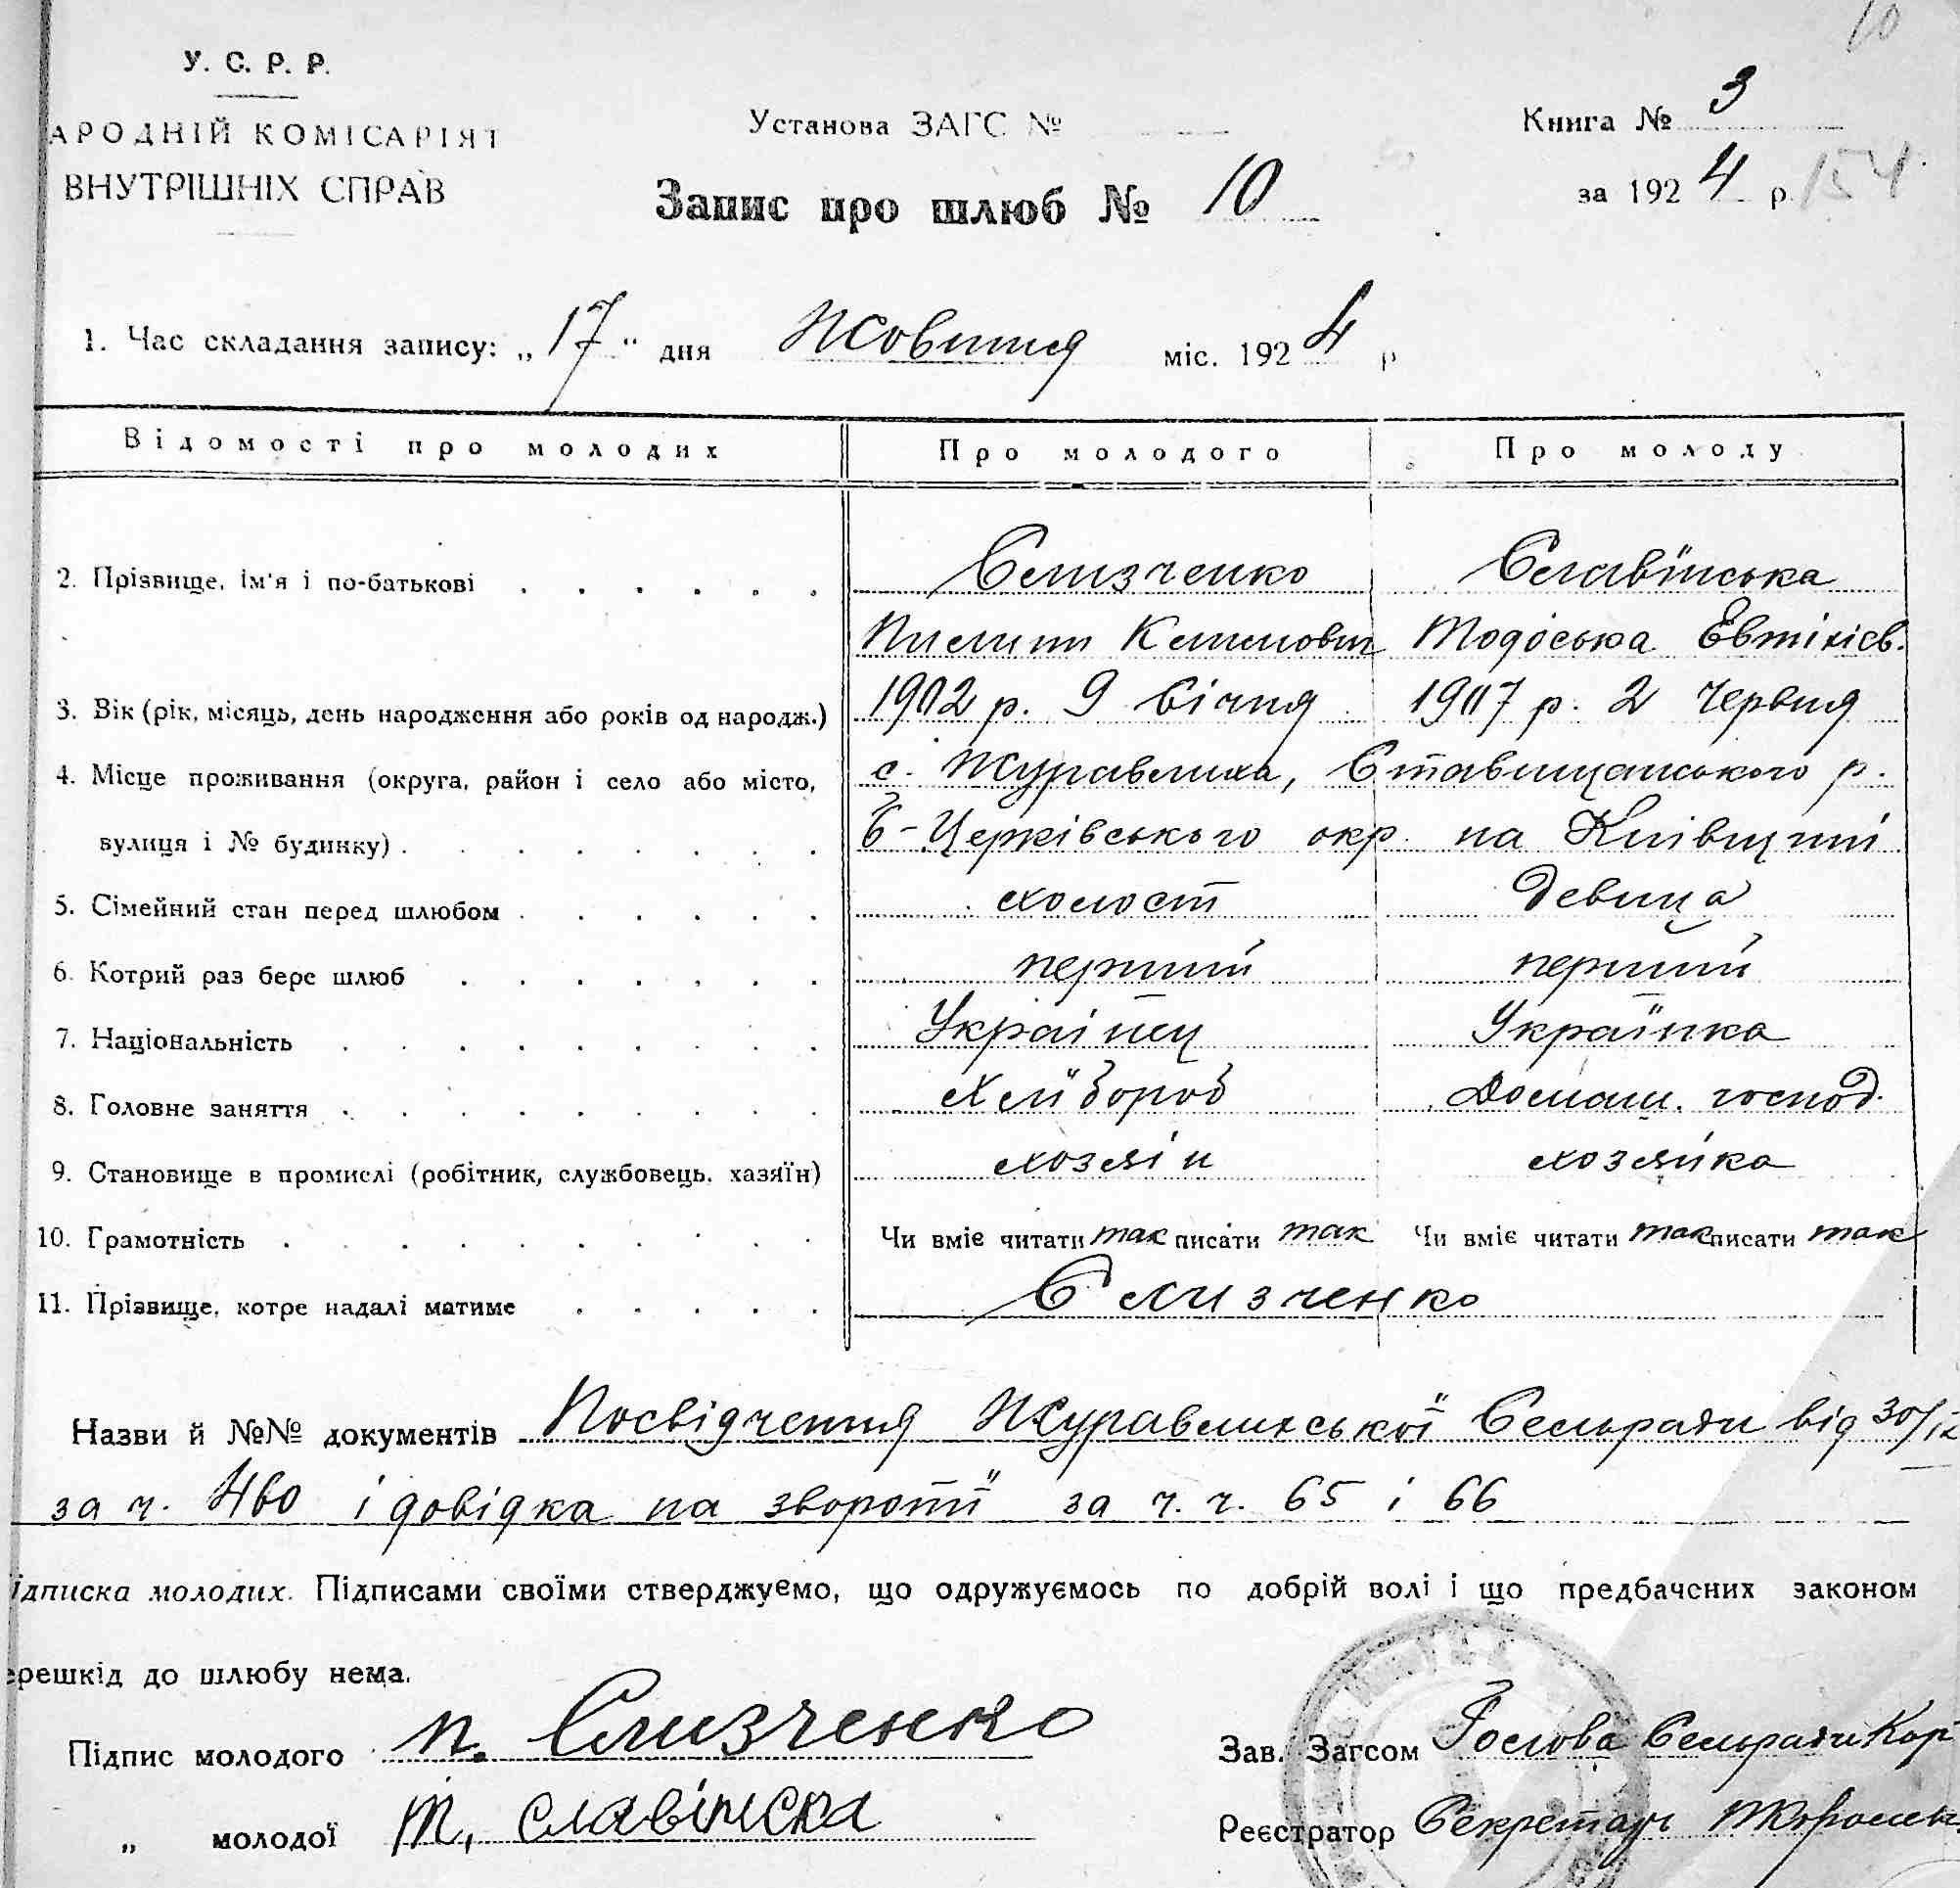 10
У. С. Р. Р.
АРОДНІЙ КОМІСАРІЯТ
ВНУТРІШНІХ СПРАВ
Установа ЗАГС №
Книга № 3
за 1924 р. 154
Запис про шлюб № 10
1. Час складання запису: „17“ дня Жовтня міс. 1924 р
Відомості про молодих Про молодого Про молоду
2. Прізвище, ім'я і по-батькові Слизченко Славінська
Пилип Климович Тодоська Евтіхієв.
3. Вік (рік, місяць, день народження або років од народж.) 1902 р. 9 Січня 1907 р. 2 Червня
4. Місце проживання (округа, район і село або місто, с. Журавлиха, Ставищанського р.
вулиця і № будинку) Б-Церківського окр. на Київщині
5. Сімейний стан перед шлюбом холост девица
6. Котрий раз бере шлюб перший перший
7. Національність Украінец Українка
8. Головне заняття Хлїбороб Домаш. господ.
9. Становище в промислі (робітник, службовець, хазяїн) хозяін хозяйка
10. Грамотність Чи вміє читати так писати так Чи вміє читати так писати так
11. Прізвище, котре надалі матиме Слизченко
Назви й №№ документів Посвідчення Журавлихської Сельради від 30/IX
за ч. 460 і довідка на звороті за ч. ч. 65 і 66
ідписка молодих. Підписами своїми стверджуємо, що одружуємось по добрій волі і що предбачених законом
ерешкід до шлюбу нема.
Підпис молодого п. Слизченко
Зав. Загсом Голова Сельради
„ молодої Т. Славінска
Реєстратор Секретарь